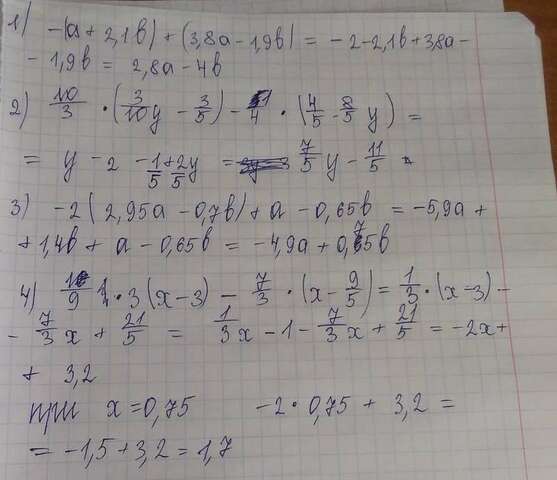 1) -(a + 2,1b) + (3,8a - 1,9b) = -2 - 2,1b + 3,8a -
- 1,9b = 2,8a - 4b
2) 10/3 · (3/10 y - 3/5) - 1/4 · (4/5 - 8/5 y) =
= y - 2 - 1/5 + 2/5 y = 7/5 y - 11/5
3) -2 (2,95a - 0,7b) + a - 0,65b = -5,9a +
+ 1,4b + a - 0,65b = -4,9a + 0,75b
4) 1/9 · 3 (x - 3) - 7/3 · (x - 9/5) = 1/3 · (x - 3) -
- 7/3 x + 21/5 = 1/3 x - 1 - 7/3 x + 21/5 = -2x +
+ 3,2
при x = 0,75 -2 · 0,75 + 3,2 =
= -1,5 + 3,2 = 1,7